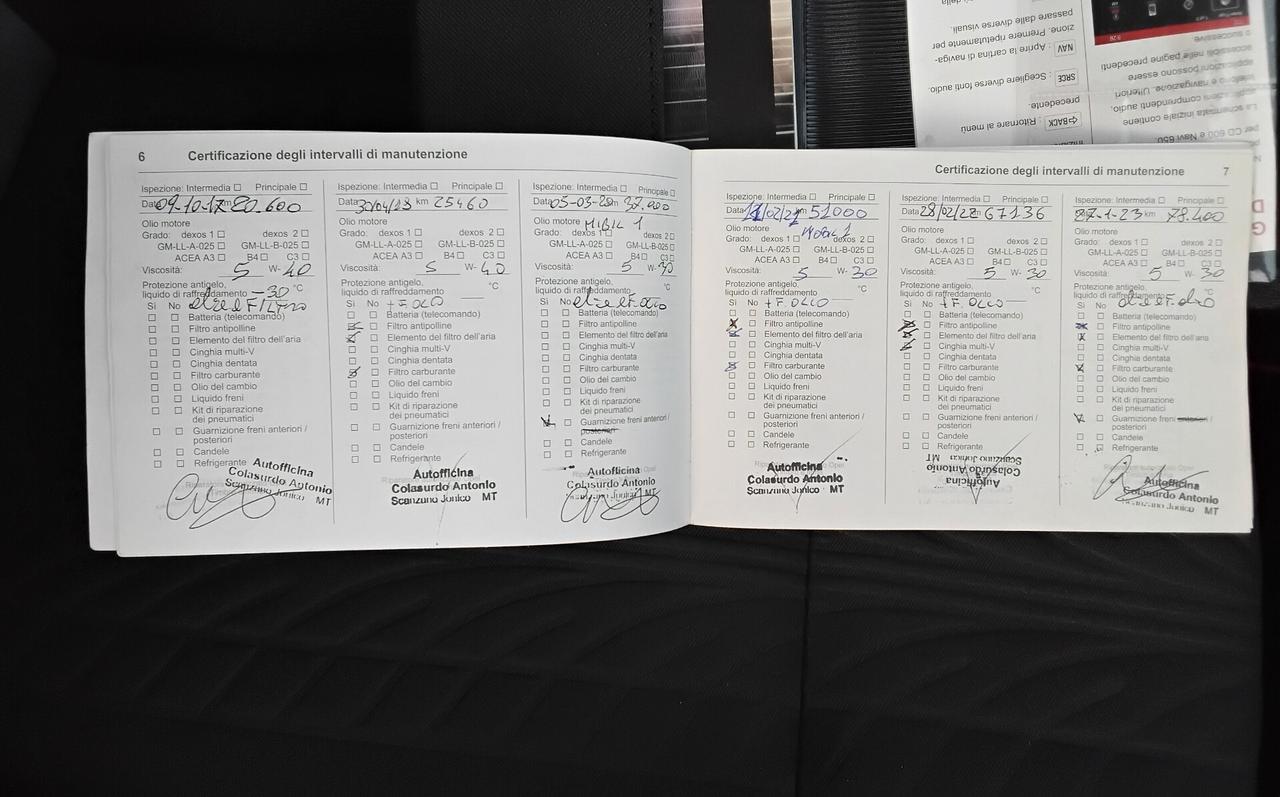 6 Certificazione degli intervalli di manutenzione
Ispezione: Intermedia Principale
Data 09-10-17 km 20.600
Olio motore
Grado: dexos 1 dexos 2
GM-LL-A-025 GM-LL-B-025
ACEA A3 B4 C3
Viscosità: 5 W- 40
Protezione antigelo,
liquido di raffreddamento -30 °C
Sì No
Batteria (telecomando)
Filtro antipolline
Elemento del filtro dell'aria
Cinghia multi-V
Cinghia dentata
Filtro carburante
Olio del cambio
Liquido freni
Kit di riparazione
dei pneumatici
Guarnizione freni anteriori /
posteriori
Candele
Refrigerante
Autofficina
Colasurdo Antonio
Scanzano Jonico MT
Ispezione: Intermedia Principale
Data 30/04/18 km 25460
Olio motore
Grado: dexos 1 dexos 2
GM-LL-A-025 GM-LL-B-025
ACEA A3 B4 C3
Viscosità: 5 W- 40
Protezione antigelo,
liquido di raffreddamento °C
Sì No + F. OLIO
Batteria (telecomando)
Filtro antipolline
Elemento del filtro dell'aria
Cinghia multi-V
Cinghia dentata
Filtro carburante
Olio del cambio
Liquido freni
Kit di riparazione
dei pneumatici
Guarnizione freni anteriori /
posteriori
Candele
Refrigerante
Autofficina
Colasurdo Antonio
Scanzano Jonico MT
Ispezione: Intermedia Principale
Data 05-03-20 km 37.000
Olio motore MIBIL 1
Grado: dexos 1 dexos 2
GM-LL-A-025 GM-LL-B-025
ACEA A3 B4 C3
Viscosità: 5 W- 30
Protezione antigelo,
liquido di raffreddamento °C
Sì No
Batteria (telecomando)
Filtro antipolline
Elemento del filtro dell'aria
Cinghia multi-V
Cinghia dentata
Filtro carburante
Olio del cambio
Liquido freni
Kit di riparazione
dei pneumatici
Guarnizione freni anteriori /
posteriori
Candele
Refrigerante
Autofficina
Colasurdo Antonio
Scanzano Jonico MT
Certificazione degli intervalli di manutenzione 7
Ispezione: Intermedia Principale
Data /02/21 km 51000
Olio motore MOBIL 1
Grado: dexos 1 dexos 2
GM-LL-A-025 GM-LL-B-025
ACEA A3 B4 C3
Viscosità: 5 W- 30
Protezione antigelo,
liquido di raffreddamento °C
Sì No + F. OLIO
Batteria (telecomando)
Filtro antipolline
Elemento del filtro dell'aria
Cinghia multi-V
Cinghia dentata
Filtro carburante
Olio del cambio
Liquido freni
Kit di riparazione
dei pneumatici
Guarnizione freni anteriori /
posteriori
Candele
Refrigerante
Autofficina
Colasurdo Antonio
Scanzano Jonico MT
Ispezione: Intermedia Principale
Data 28/02/22 km 67136
Olio motore
Grado: dexos 1 dexos 2
GM-LL-A-025 GM-LL-B-025
ACEA A3 B4 C3
Viscosità: 5 W- 30
Protezione antigelo,
liquido di raffreddamento °C
Sì No + F. OLIO
Batteria (telecomando)
Filtro antipolline
Elemento del filtro dell'aria
Cinghia multi-V
Cinghia dentata
Filtro carburante
Olio del cambio
Liquido freni
Kit di riparazione
dei pneumatici
Guarnizione freni anteriori /
posteriori
Candele
Refrigerante
Autofficina
Colasurdo Antonio
Scanzano Jonico MT
Ispezione: Intermedia Principale
Data 27-1-23 km 78.400
Olio motore
Grado: dexos 1 dexos 2
GM-LL-A-025 GM-LL-B-025
ACEA A3 B4 C3
Viscosità: 5 W- 30
Protezione antigelo,
liquido di raffreddamento °C
Sì No
Batteria (telecomando)
Filtro antipolline
Elemento del filtro dell'aria
Cinghia multi-V
Cinghia dentata
Filtro carburante
Olio del cambio
Liquido freni
Kit di riparazione
dei pneumatici
Guarnizione freni anteriori /
posteriori
Candele
Refrigerante
Autofficina
Colasurdo Antonio
Scanzano Jonico MT
per CD 600 e Navi 650.
La schermata iniziale contiene
applicazioni comprendenti audio,
telefono e navigazione. Ulteriori
applicazioni possono essere
accessibili nelle pagine precedenti
o successive.
BACK : Ritornare al menù
precedente.
SRCE : Scegliere diverse fonti audio.
NAV : Aprire la cartina di naviga-
zione. Premere ripetutamente per
passare dalle diverse visuali.